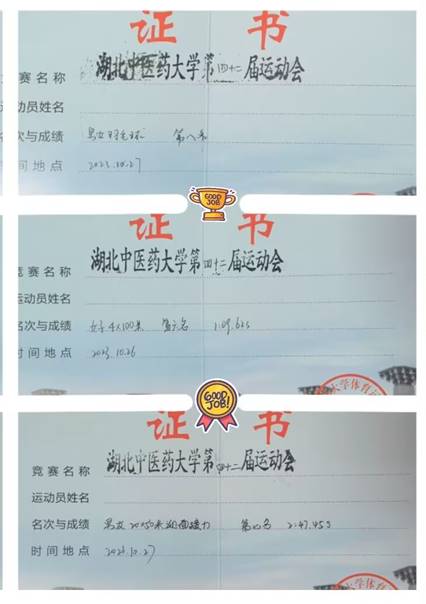 证 书
赛名称 湖北中医药大学第四十二届运动会
动员姓名
次与成绩 男女羽毛球 第八名
间地点 2023.10.27
GOOD JOB
证 书
竞赛名称 湖北中医药大学第四十二届运动会
运动员姓名
名次与成绩 女子4×100米 第六名 1:09.62s
时间地点 2023.10.26
大学体育
GOOD JOB!
证 书
竞赛名称 湖北中医药大学第四十二届运动会
运动员姓名
名次与成绩 男女20×50米迎面接力 2:47.45s
时间地点 2023.10.27